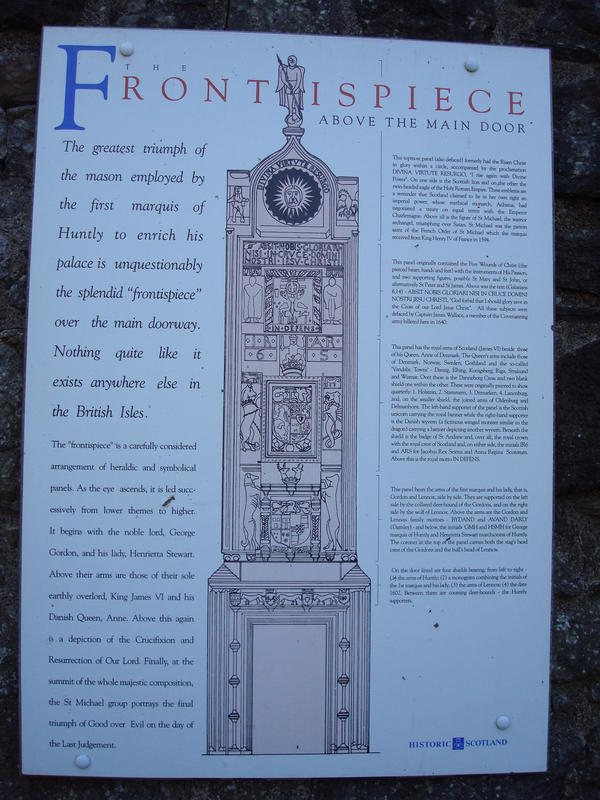 THE
FRONTISPIECE
ABOVE THE MAIN DOOR
The greatest triumph of
the mason employed by
the first marquis of
Huntly to enrich his
palace is unquestionably
the splendid "frontispiece"
over the main doorway.
Nothing quite like it
exists anywhere else in
the British Isles.
The "frontispiece" is a carefully considered
arrangement of heraldic and symbolical
panels. As the eye ascends, it is led succ-
essively from lower themes to higher.
It begins with the noble lord, George
Gordon, and his lady, Henrietta Stewart.
Above their arms are those of their sole
earthly overlord, King James VI and his
Danish Queen, Anne. Above this again
is a depiction of the Crucifixion and
Resurrection of Our Lord. Finally, at the
summit of the whole majestic composition,
the St Michael group portrays the final
triumph of Good over Evil on the day of
the Last Judgement.
DIVINA VIRTUTE RESURGO
ABSIT NOBIS GLORIARI
NISI IN CRVCE DOMINI
NOSTRI IESV CHRISTI
IN DEFENS
This topmost panel (also defaced) formerly had the Risen Christ
in glory within a circle, accompanied by the proclamation
DIVINA VIRTUTE RESURGO, "I rise again with Divine
Power". On one side is the Scottish lion and on the other the
twin-headed eagle of the Holy Roman Empire. These emblems are
a reminder that Scotland claimed to be in her own right an
imperial power, whose mythical monarch, Achaius, had
negotiated a treaty on equal terms with the Emperor
Charlemagne. Above all is the figure of St Michael, the warrior
archangel, triumphing over Satan. St Michael was the patron
saint of the French Order of St Michael which the marquis
received from King Henry IV of France in 1594.
This panel originally contained the Five Wounds of Christ (the
pierced heart, hands and feet) with the instruments of His Passion,
and two supporting figures, possibly St Mary and St John, or
alternatively St Peter and St James. Above was the text (Galatians
6,14) - ABSIT NOBIS GLORIARI NISI IN CRUCE DOMINI
NOSTRI JESU CHRISTI, "God forbid that I should glory save in
the Cross of our Lord Jesus Christ". All these subjects were
defaced by Captain James Wallace, a member of the Covenanting
army billeted here in 1640.
This panel has the royal arms of Scotland (James VI) beside those
of his Queen, Anne of Denmark. The Queen's arms include those
of Denmark, Norway, Sweden, Gothland and the so-called
'Vandalic Towns' - Danzig, Elbing, Konigsberg, Riga, Stralsund
and Wismar. Over these is the Dannebrog Cross and two blank
shield one within the other. These were originally painted to show
quarterly: 1. Holstein, 2. Stammern, 3. Ditmarken, 4. Lauenburg,
and, on the smaller shield, the joined arms of Oldenburg and
Delmenhorst. The left-hand supporter of the panel is the Scottish
unicorn carrying the royal banner while the right-hand supporter
is the Danish wyvern (a fictitious winged monster similar to the
dragon) carrying a banner depicting another wyvern. Beneath the
shield is the badge of St Andrew and, over all, the royal crown
with the royal crest of Scotland and, on either side, the initials IR6
and ARS for Jacobus Rex Sextus and Anna Regina Scotorum.
Above this is the royal motto IN DEFENS.
This panel bears the arms of the first marquis and his lady, that is,
Gordon and Lennox, side by side. They are supported on the left
side by the collared deer-hound of the Gordons, and on the right
side by the wolf of Lennox. Above the arms are the Gordon and
Lennox family mottoes - BYDAND and AVAND DARLY
(Darnley) - and below, the initials GMH and HSMH for George
marquis of Huntly and Henrietta Stewart marchioness of Huntly.
The coronet in the top of the panel carries both the stag's head
crest of the Gordons and the bull's head of Lennox.
On the door lintel are four shields bearing, from left to right -
(1) the arms of Huntly; (2) a monogram combining the initials of
the 1st marquis and his lady; (3) the arms of Lennox; (4) the date
1602. Between them are coursing deer-hounds - the Huntly
supporters.
HISTORIC SCOTLAND